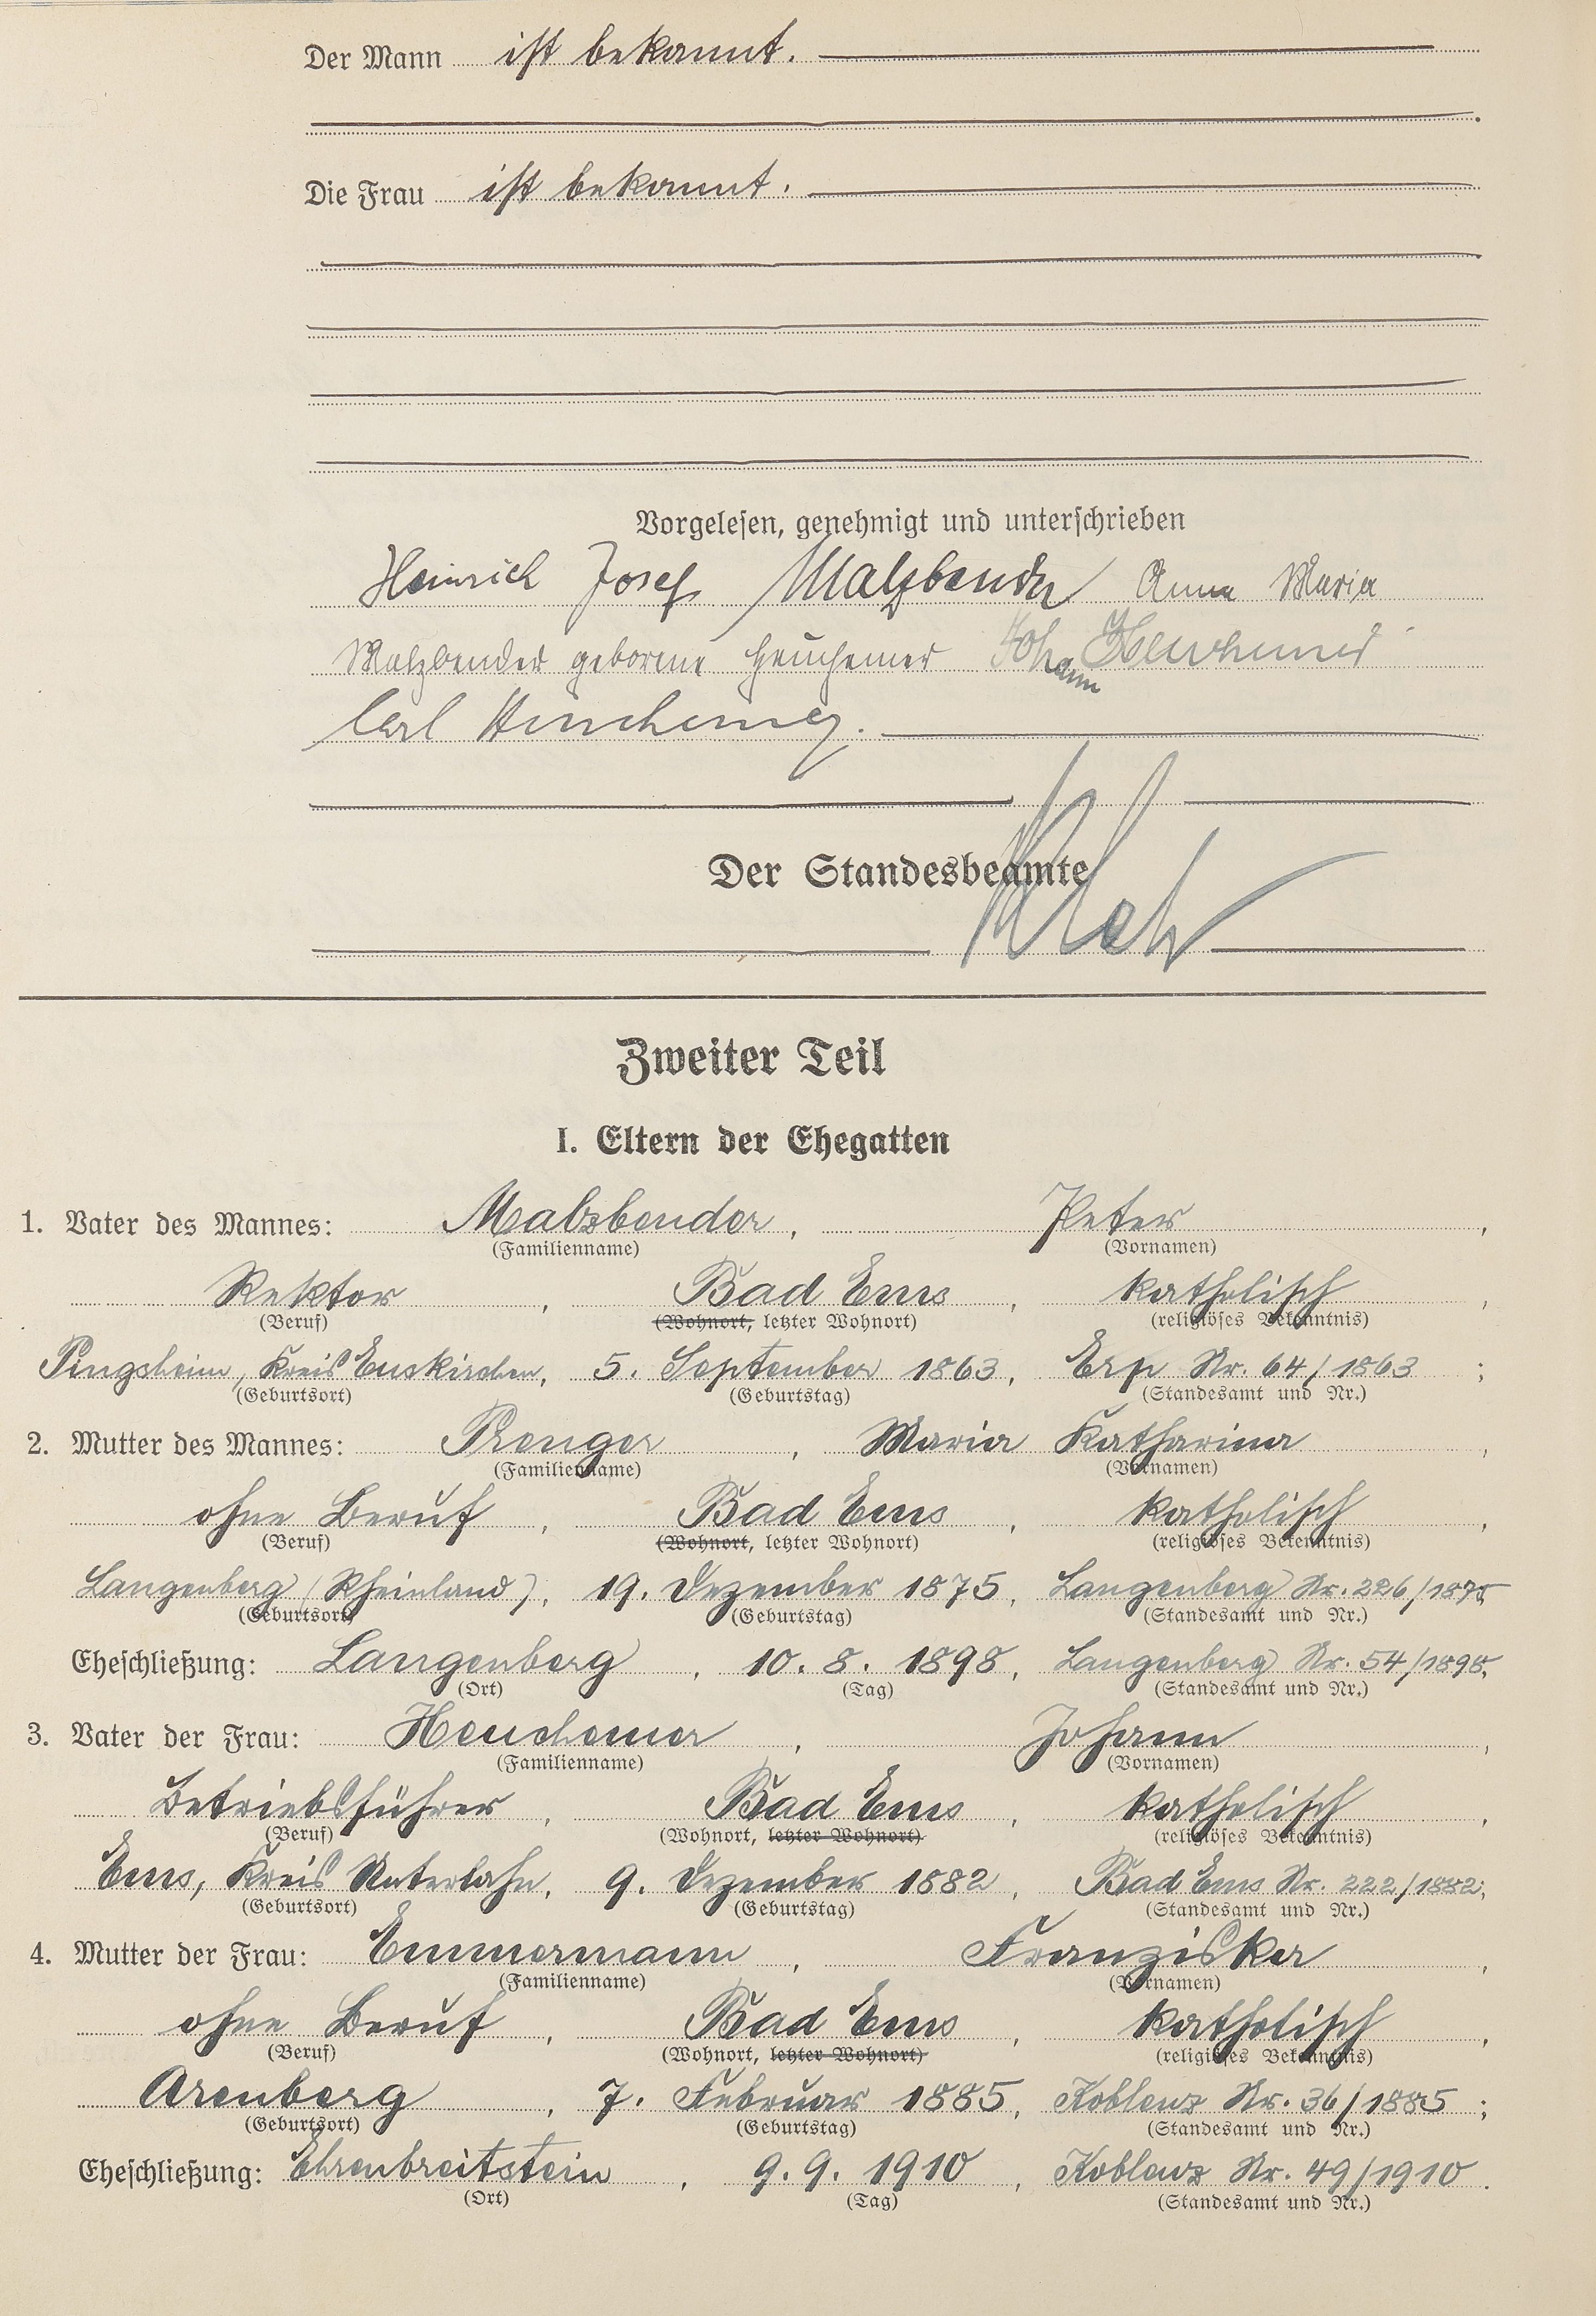 Der Mann ist bekannt.
Die Frau ist bekannt.
Vorgelesen, genehmigt und unterschrieben
Heinrich Josef Malzbender Anna Maria
Malzbender geborene Heuchemer Johann Heuchemer
Carl Heuchemer.
Der Standesbeamte
Zweiter Teil
I. Eltern der Ehegatten
1. Vater des Mannes: Malzbender, Peter,
(Familienname) (Vornamen)
Rektor, Bad Ems, katholisch,
(Beruf) (Wohnort, letzter Wohnort) (religiöses Bekenntnis)
Pingsheim, Kreis Euskirchen, 5. September 1863, Erp Nr. 64/1863;
(Geburtsort) (Geburtstag) (Standesamt und Nr.)
2. Mutter des Mannes: Prenger, Maria Katharina,
(Familienname) (Vornamen)
ohne Beruf, Bad Ems, katholisch,
(Beruf) (Wohnort, letzter Wohnort) (religiöses Bekenntnis)
Langenberg (Rheinland), 19. Dezember 1875, Langenberg Nr. 226/1875
(Geburtsort) (Geburtstag) (Standesamt und Nr.)
Eheschließung: Langenberg, 10. 8. 1898, Langenberg Nr. 54/1898.
(Ort) (Tag) (Standesamt und Nr.)
3. Vater der Frau: Heuchemer, Johann,
(Familienname) (Vornamen)
Betriebsführer, Bad Ems, katholisch,
(Beruf) (Wohnort, letzter Wohnort) (religiöses Bekenntnis)
Ems, Kreis Unterlahn, 9. Dezember 1882, Bad Ems Nr. 222/1882;
(Geburtsort) (Geburtstag) (Standesamt und Nr.)
4. Mutter der Frau: Emmermann, Franziska,
(Familienname) (Vornamen)
ohne Beruf, Bad Ems, katholisch,
(Beruf) (Wohnort, letzter Wohnort) (religiöses Bekenntnis)
Arenberg, 7. Februar 1885, Koblenz Nr. 36/1885;
(Geburtsort) (Geburtstag) (Standesamt und Nr.)
Eheschließung: Ehrenbreitstein, 9. 9. 1910, Koblenz Nr. 49/1910.
(Ort) (Tag) (Standesamt und Nr.)